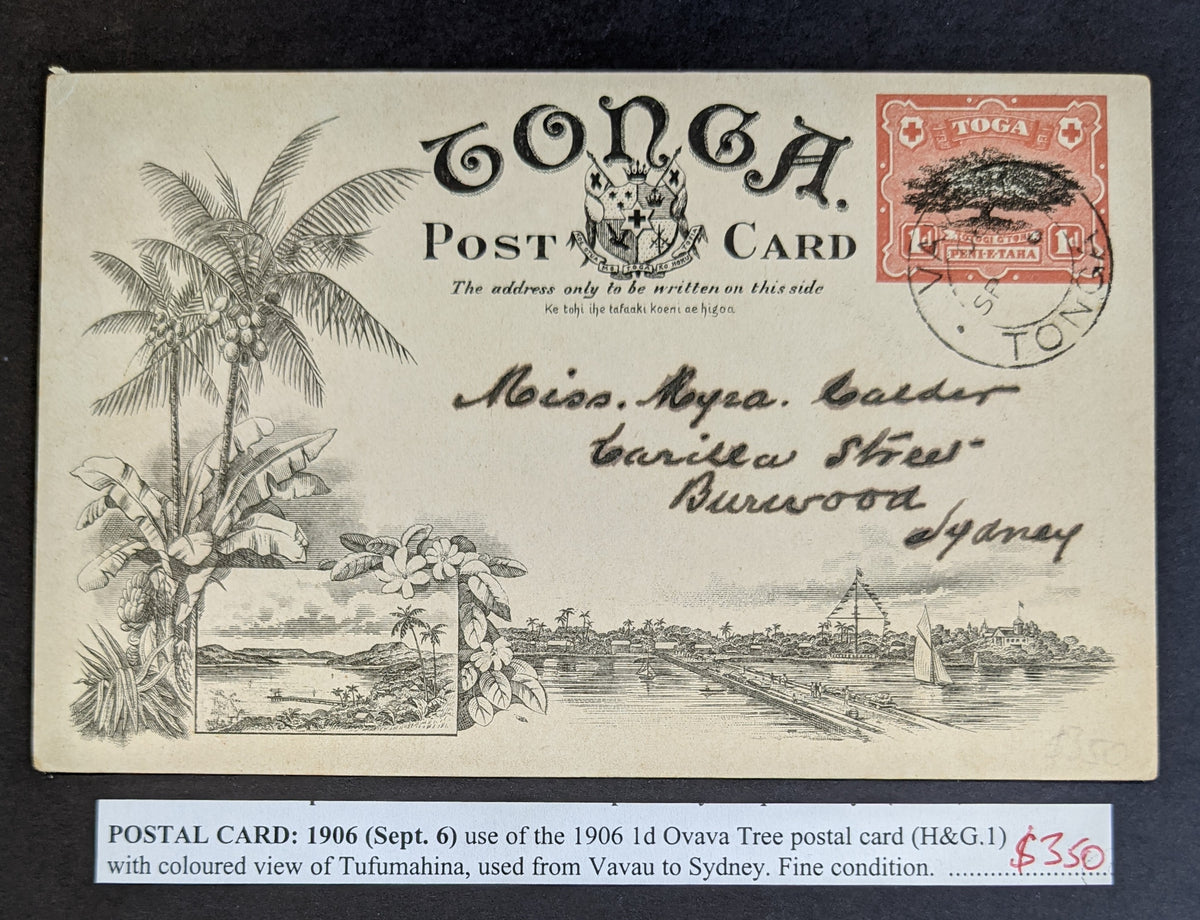 TONGA.
POST CARD
KO TOGA
The address only to be written on this side
Ke tohi ihe tafaaki koeni ae higoa
TOGA
1d 1d
PENI-E-TAHA
TONGA
Miss. Myra. Calder
Carilla Street
Burwood
Sydney
$350
POSTAL CARD: 1906 (Sept. 6) use of the 1906 1d Ovava Tree postal card (H&G.1)
with coloured view of Tufumahina, used from Vavau to Sydney. Fine condition. ........................
$350